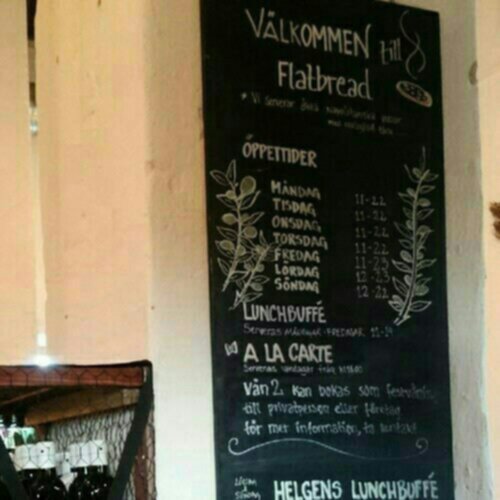 VÄLKOMMEN till
Flatbread
* Vi serverar
ÖPPETTIDER
MÅNDAG 11-22
TISDAG 11-22
ONSDAG 11-22
TORSDAG 11-22
FREDAG 11-23
LÖRDAG 12-23
SÖNDAG 12-22
LUNCHBUFFÉ
Serveras MÅNDAG - FREDAG 11-14
A LA CARTE
Serveras vardagar från
Vån 2. kan bokas som
till privatperson eller företag
för mer information, ta kontakt
HELGENS LUNCHBUFFÉ